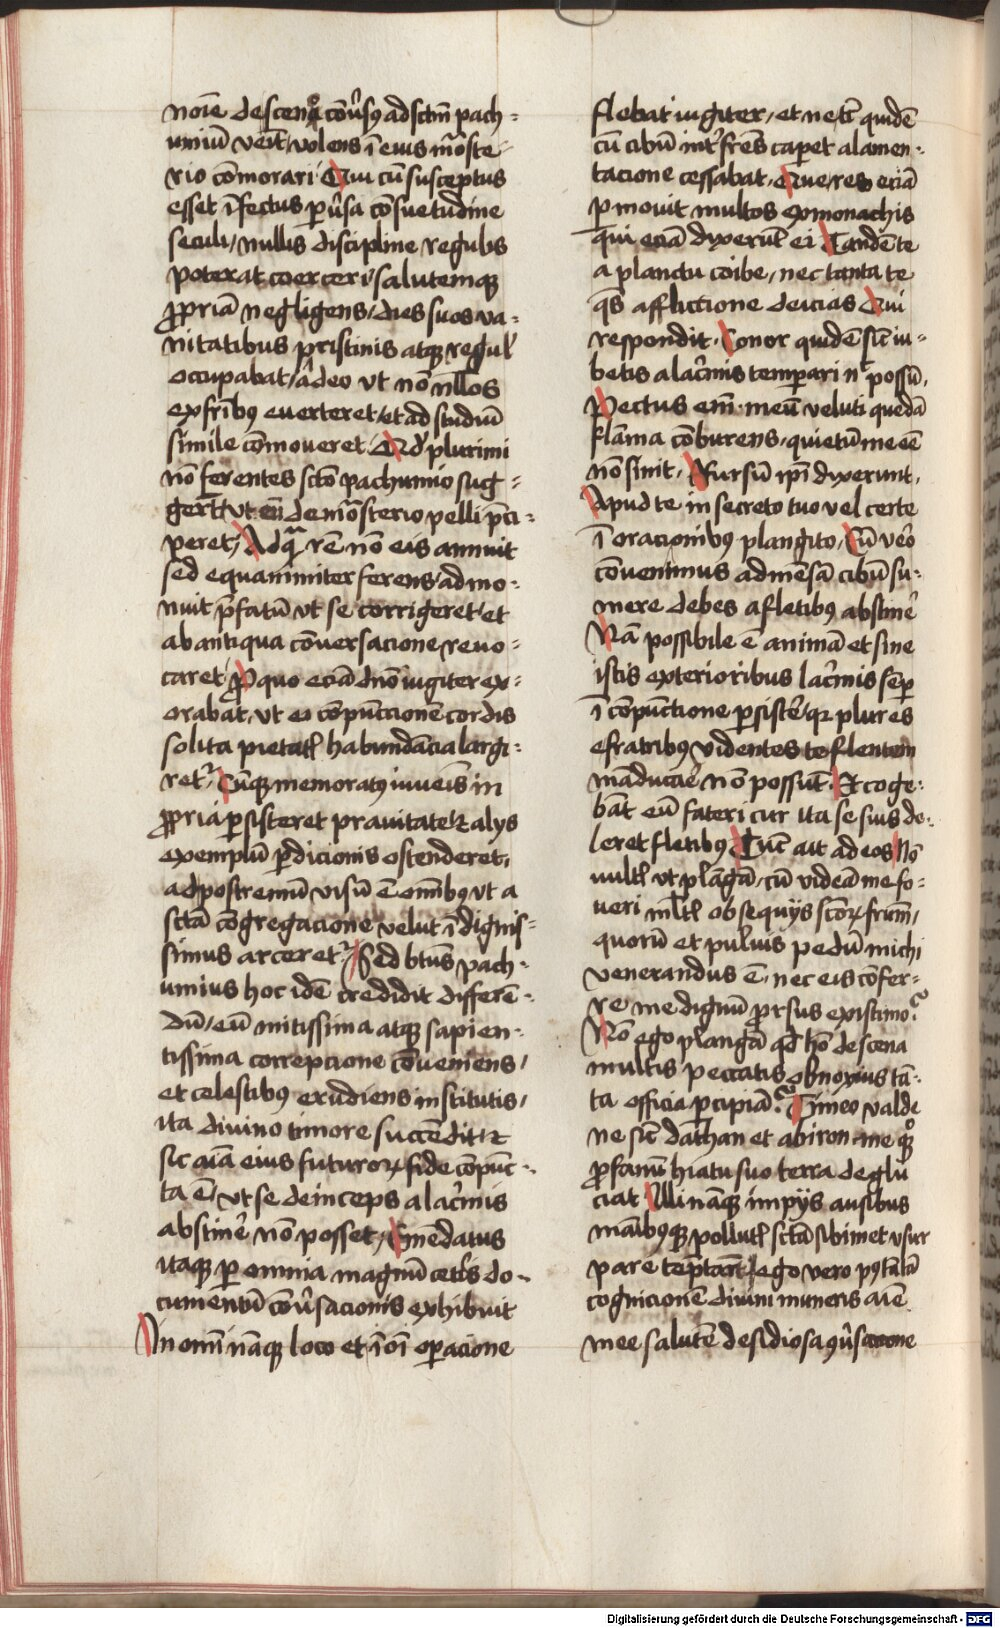 noīe descenꝰ cōūsꝰ ad sctm̄ pach-
umiū veīt, volens ī eius mōste-
rio cōmorari Qui cū susceptus
esset īfectus pūsa cōsuetudine
seculi, nullis discipline regulis
poterat coerceri, salutemqꝫ
ꝓpriā negligens, dies suos va-
nitatibus pristinis atqꝫ regul̄
occupabat, adeo vt nō nll̄os
ex fr̄ibꝰ euerteret, et ad studiū
simile cōmoueret Qd̓ plurimi
nō ferentes scto pachumio sug-
gerūt vt eū de mōsterio pelli p̄ci-
peret, Ad qᷓ rē nō eis annuit
sed equanimiter ferens, admo-
nuit p̄fatū vt se corrigeret, et
ab antiqua cōuersacione reuo-
caret, ꝓ quo eciā dn̄o iugiter ex-
orabat, vt ei cōpūccionē cordis
solita pietatꝭ habundācia largi-
ret᷑, Cūqꝫ memoratꝰ iuueīs in
ꝓpria ꝑsisteret prauitate, ⁊ alijs
exemplū ꝑdicionis ostenderet,
ad postremū visū ē om̄ibꝰ vt a
sctā cōgregacione velut īdignis-
simus arceret᷑, Sed btūs pach-
umius hoc idē credidit differē-
dū, eū mitissima atqꝫ sapien-
tissima correpcione cōueniens,
et celestibꝰ erudiens institutis,
ita diuino timore succēdit, ⁊
sic aīa eius futuroꝝ fide cōpūc-
ta ē, vt se deinceps a lac̓mis
abstinē nō posset, Emēdatus
itaqꝫ ꝑ omnia magnū cetīs do-
cumentū cōūsacionis exhibuit
In om̄i nāqꝫ loco et ī oī oꝑacione
flebat iugiter, et ne tc̄ quidē
cū cibū int̓ frēs caꝑet a lamen-
tacione cessabat, Que res eciā
ꝑmouit multos ex monachis
qui eciā dixerūt ei Tandē te
a planctu coibe, nec tanta te
qs̄ affliccione deicias Qui
respondit, Conor quidē sic̄ iu-
betis a lac̓mis temꝑari nͨ possū,
Pectus em̄ meū veluti quedā
flāma cōburens, quietū me eē
nō sinit, Rursū ip̄i dixerunt,
Apud te in secreto tuo vel certe
ī oracionibꝰ plangito, Cū vēo
cōuenimus ad mēsā cibū su-
mere debes a fletibꝰ abstinē
Nā possibile ē animā et sine
istis exterioribus lac̓mis semꝑ
ī cōpūctione ꝑsistē, qꝛ plures
e fratribꝰ videntes te flentem
māducare nō possūt, Et coge-
bāt eū fateri cur ita se suis de-
leret fletibꝰ Tūc ait ad eos Nō
vultꝭ vt plāgā, cū videā me fo-
ueri ml̄tꝭ obsequijs sctoꝝ frūm,
quorū et puluis pedū michi
venerandus ē, nec eis cōfer-
re me dignū ꝓrsus existimo?
Nō ego plangā qd̓ hō de scena
multis peccatis obnoxius tā-
ta officia ꝑcipiā? Timeo valde
ne sic̄ dathan et abiron me qͦꝫ
ꝓfanū hiatu suo terra deglu
ciat Illi nāqꝫ impijs ausibus
maībꝰqꝫ pollutꝭ sctā sibimet vsur
pare tēptarūt, ego vero
cognicionē diuini muneris aīe
mee salutē desidiosa ꝯūsacione
Digitalisierung gefördert durch die Deutsche Forschungsgemeinschaft - DFG